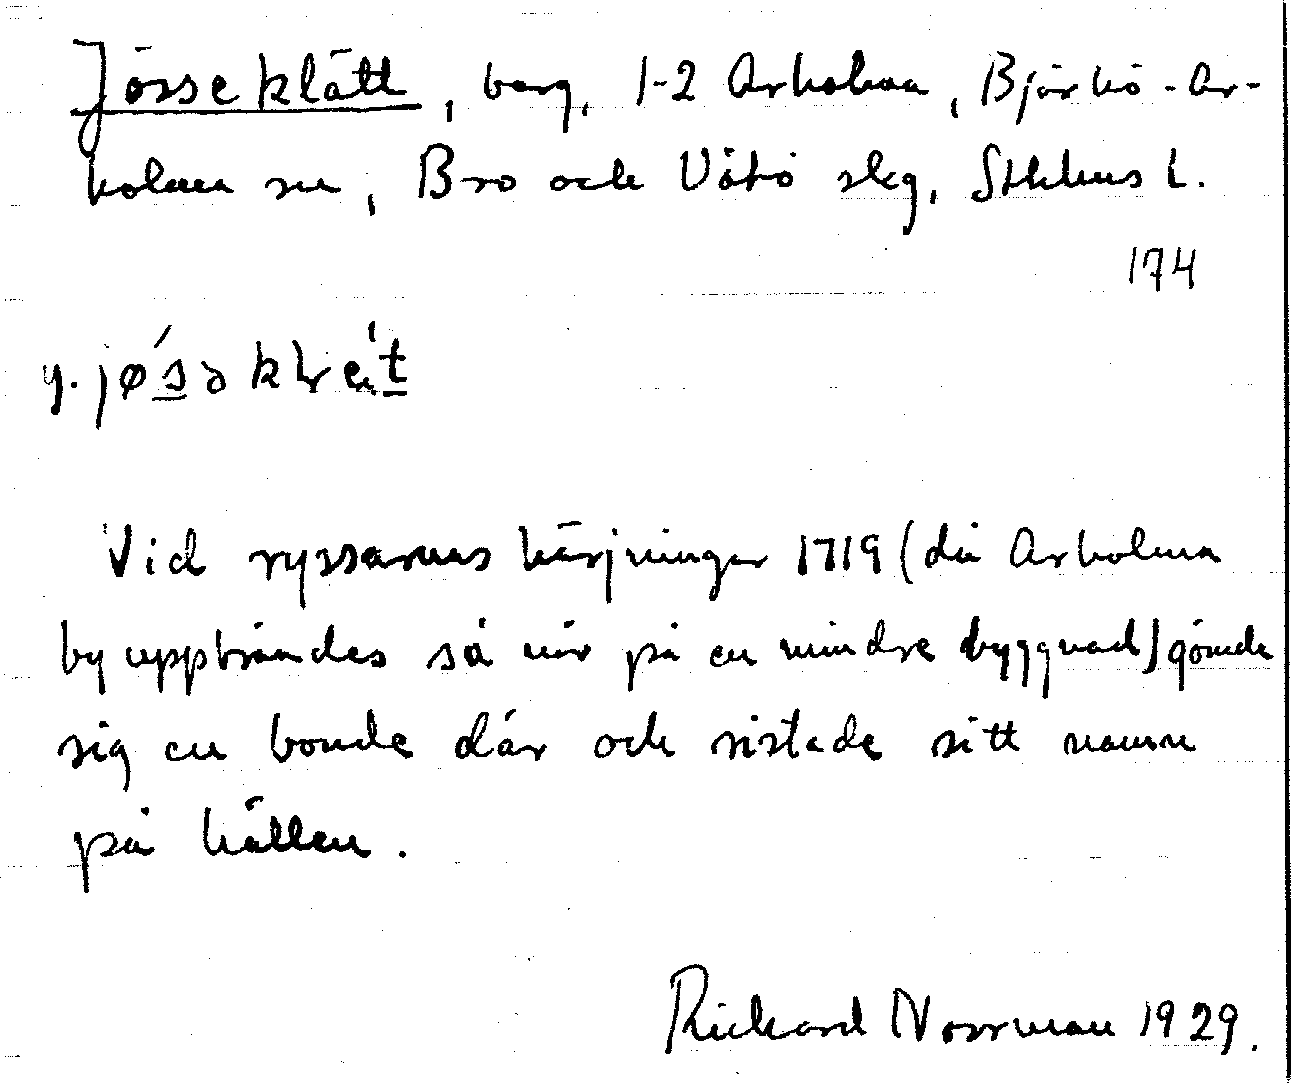 Jösseklätt, berg, 1-2 Arholma, Björkö-Ar-
holma sn, Bro och Vätö skg, Sthlms l.
174
Vid ryssarnas härjningar 1719 (då Arholma
by uppbrändes så när på en mindre byggnad) gömde
sig en bonde där och ristade sitt namn
på hällen.
Rickard Norrman 1929.